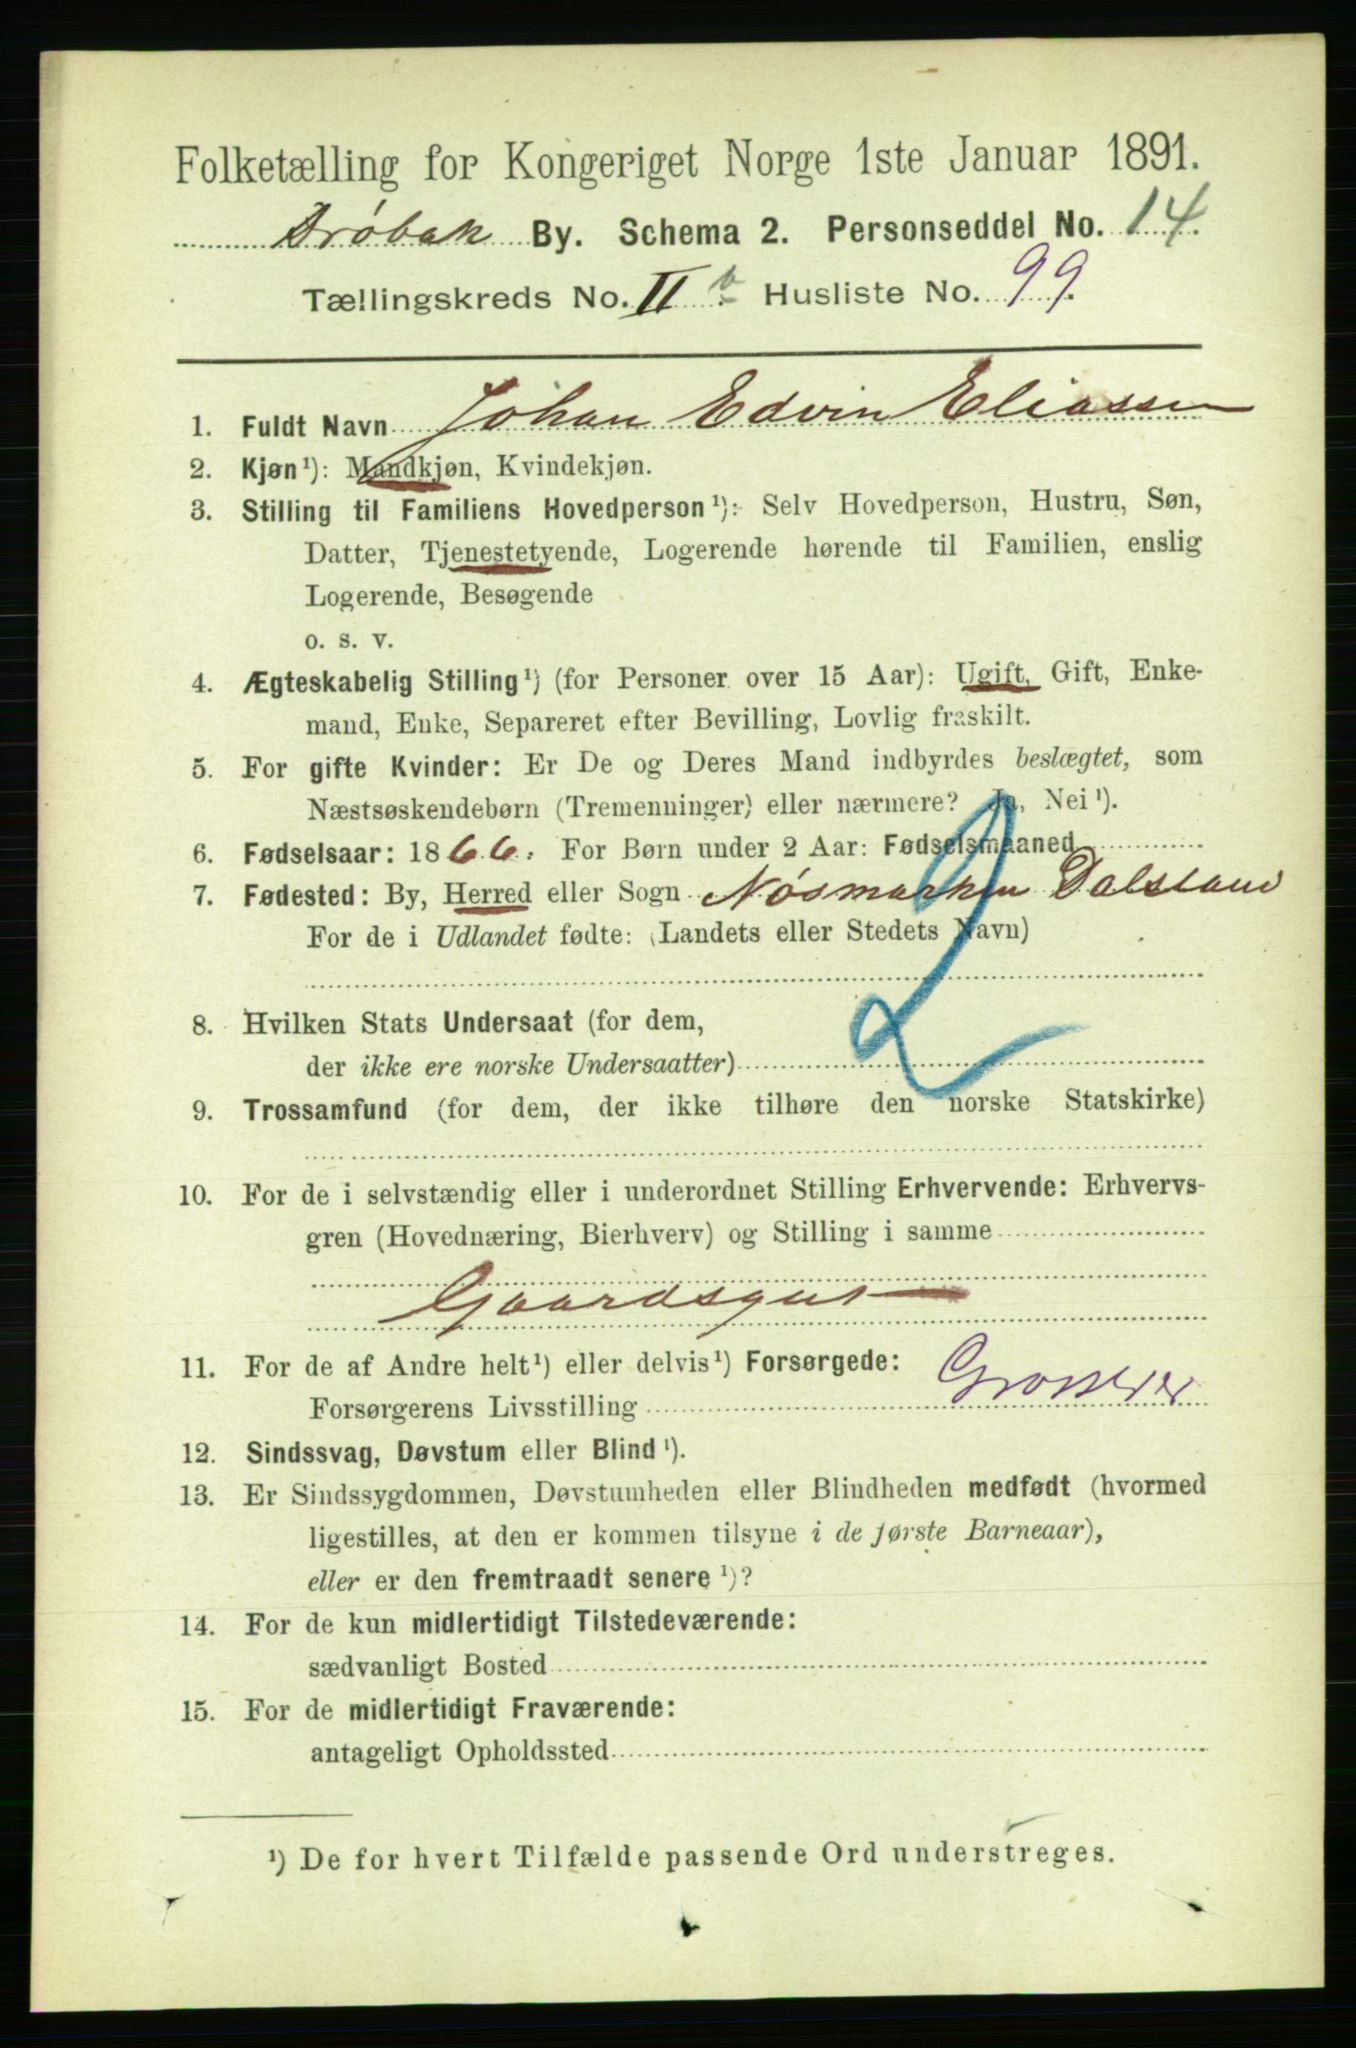 Folketælling for Kongeriget Norge 1ste Januar 1891.
Drøbak By. Schema 2. Personseddel No. 14.
Tællingskreds No. II b Husliste No. 99.
1. Fuldt Navn Johan Edvin Eliassen
2. Kjøn¹): Mandkjøn, Kvindekjøn.
3. Stilling til Familiens Hovedperson¹): Selv Hovedperson, Hustru, Søn,
Datter, Tjenestetyende, Logerende hørende til Familien, enslig
Logerende, Besøgende
o. s. v.
4. Ægteskabelig Stilling¹) (for Personer over 15 Aar): Ugift, Gift, Enke-
mand, Enke, Separeret efter Bevilling, Lovlig fraskilt.
5. For gifte Kvinder: Er De og Deres Mand indbyrdes beslægtet, som
Næstsøskendebørn (Tremenninger) eller nærmere? Ja, Nei¹).
6. Fødselsaar: 1866. For Børn under 2 Aar: Fødselsmaaned
7. Fødested: By, Herred eller Sogn Nøsmarken Dalsland
For de i Udlandet fødte: (Landets eller Stedets Navn)
2
8. Hvilken Stats Undersaat (for dem,
der ikke ere norske Undersaatter)
9. Trossamfund (for dem, der ikke tilhøre den norske Statskirke)
10. For de i selvstændig eller i underordnet Stilling Erhvervende: Erhvervs-
gren (Hovednæring, Bierhverv) og Stilling i samme
Gaardsgut
11. For de af Andre helt¹) eller delvis¹) Forsørgede:
Forsørgerens Livsstilling Grosserer
12. Sindssvag, Døvstum eller Blind¹).
13. Er Sindssygdommen, Døvstumheden eller Blindheden medfødt (hvormed
ligestilles, at den er kommen tilsyne i de første Barneaar),
eller er den fremtraadt senere¹)?
14. For de kun midlertidigt Tilstedeværende:
sædvanligt Bosted
15. For de midlertidigt Fraværende:
antageligt Opholdssted
¹) De for hvert Tilfælde passende Ord understreges.